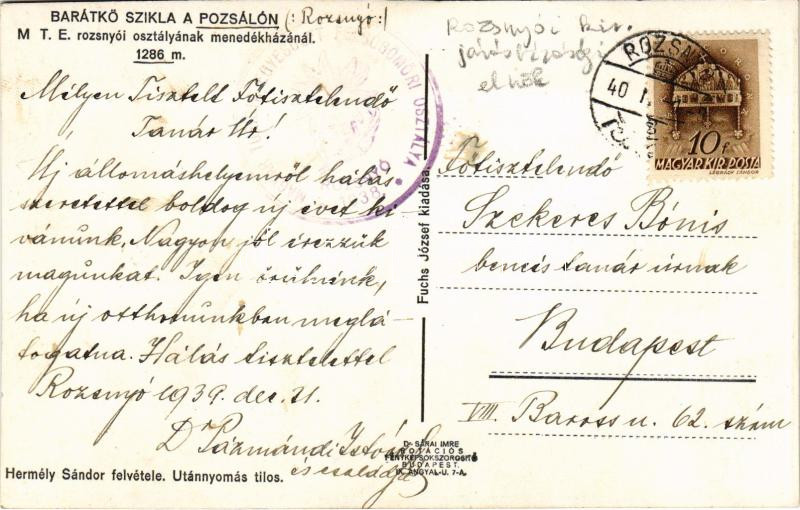 BARÁTKŐ SZIKLA A POZSÁLÓN (: Rozsnyó:)
M T. E. rozsnyói osztályának menedékházánál.
1286 m.
Mélyen Tisztelt Főtisztelendő
Tanár Úr!
Új állomáshelyemről hálás
szeretettel boldog új évet ki
vánunk, Nagyon jól érezzük
magunkat. Igen örülnénk,
ha új otthonunkban meglá-
togatna. Hálás tisztelettel
Rozsnyó 1939. dec. 31.
D Pázmándi István
és családja
Hermély Sándor felvétele. Utánnyomás tilos.
OSZTÁLYA
Fuchs József kiadása.
Rozsnyói kir.
járásbírósági
elnök
ROZSNY
40 I.
10 f
MAGYAR KIR. POSTA
LÉGRÁDY SÁNDOR
Főtisztelendő
Szekeres Bónis
bencés tanár úrnak
Budapest
VIII. Baross u. 62. szám
Dr SÁRAI IMRE
ROTÁCIÓS
FÉNYKÉPSOKSZOROSITÓ
BUDAPEST.
IX. ANGYAL-U. 7-A.